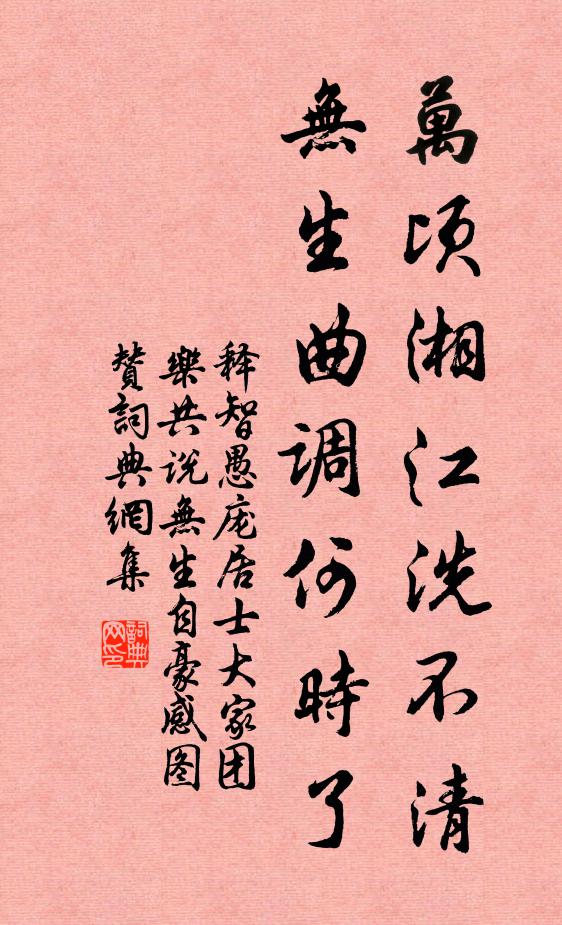 萬頃湘江洗不清
無生曲調何時了
释智愚庞居士大家团
樂共说無生自豪感图
贊詞典網集
詞典网印